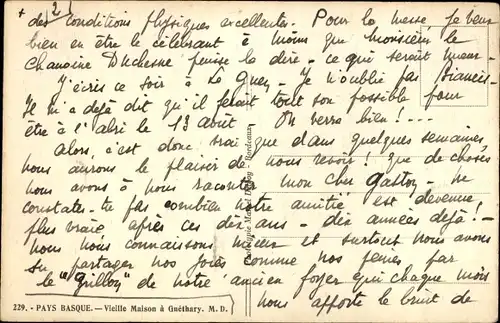 + 2
des conditions physiques excellentes. Pour la messe je veux
bien en être le célébrant à moins que Monsieur le
Chanoine Duchesne puisse la dire - ce qui serait mieux -
J'écris ce soir à Le Guen - Je n'oublie pas
Il m'a déjà dit qu'il ferait tout son possible pour
être à l'abri le 13 août - On verra bien ! ...
Alors, c'est donc vrai que dans quelques semaines
nous aurons le plaisir de nous revoir ! que de choses
nous avons à nous raconter mon cher Gaston - ne
constates-tu pas combien notre amitié est devenue
plus vraie, après ces dix ans - dix années déjà ! -
nous nous connaissons mieux et surtout nous avons
su partager nos joies comme nos peines par
le "Grillon" de notre ancien foyer qui chaque mois
nous apporte le bruit de
229. - PAYS BASQUE. — Vieille Maison à Guéthary. M. D.
Phototypie Marcel Delboy - Bordeaux